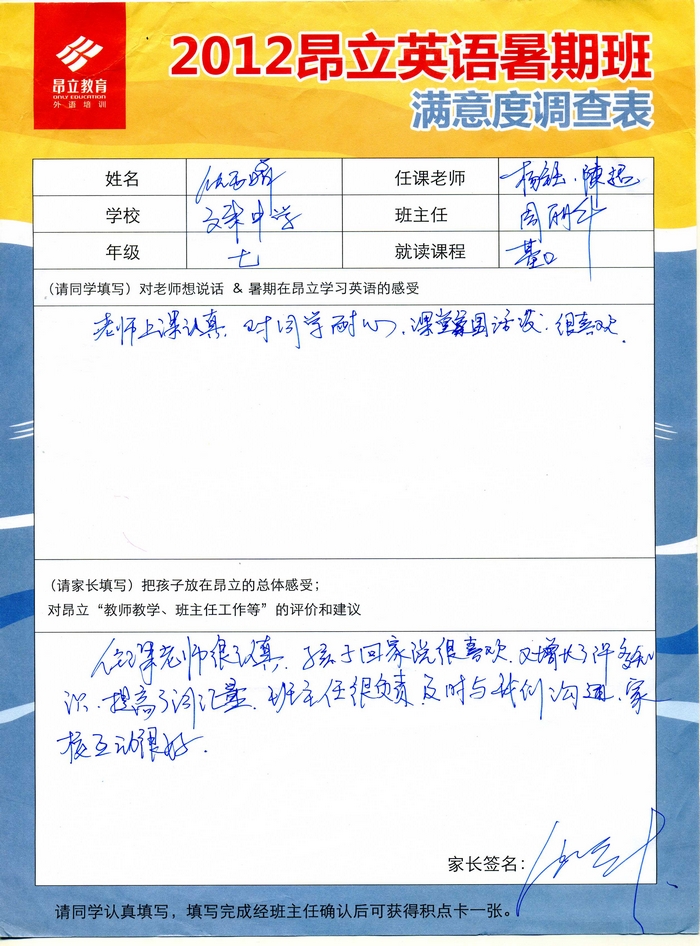 昂立教育
ONLY EDUCATION
外语培训
2012昂立英语暑期班
满意度调查表
姓名 任课老师 杨 陳
学校 文来中学 班主任 周丽华
年级 七 就读课程 基口
(请同学填写)对老师想说话 & 暑期在昂立学习英语的感受
老师上课认真.对同学耐心.课堂氛围活泼.很喜欢.
(请家长填写)把孩子放在昂立的总体感受;
对昂立“教师教学、班主任工作等”的评价和建议
任课老师很认真.孩子回家说很喜欢.又增长了许多知
识.提高了词汇量.班主任很负责.及时与我们沟通.家
校互动很好.
家长签名:
请同学认真填写，填写完成经班主任确认后可获得积点卡一张。